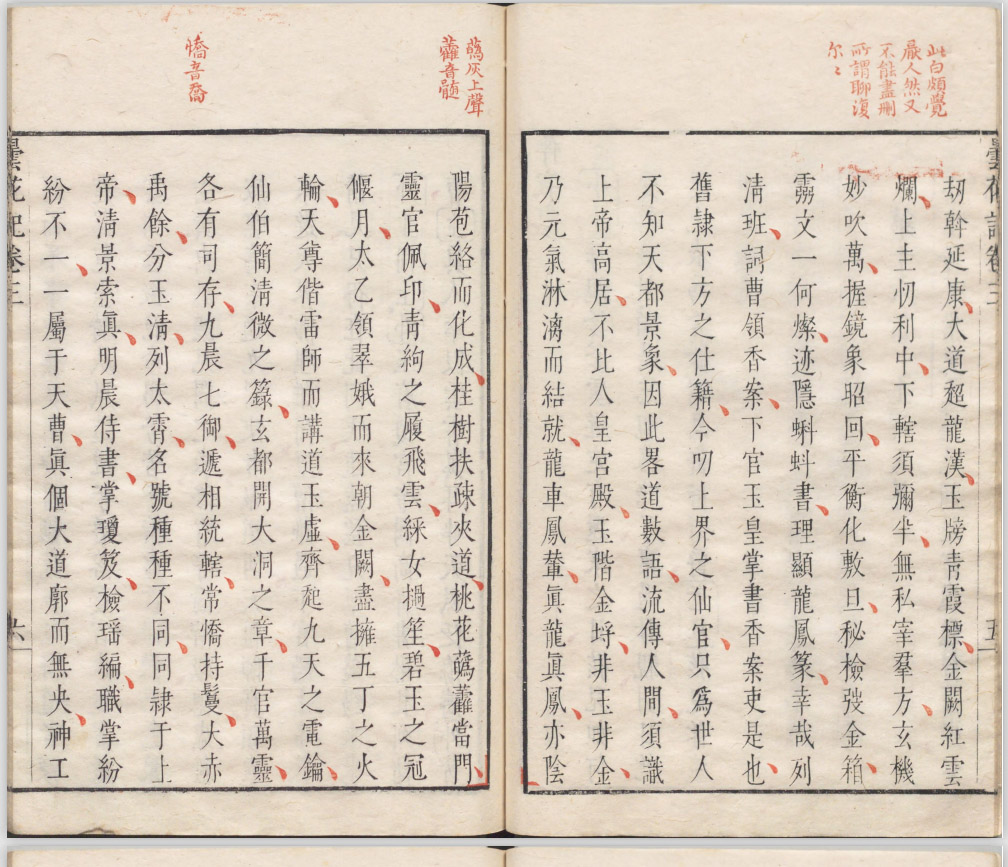 此白頗覺
嚴人然又
不能盡刪
所謂聊復
尔〻
劫斡延康大道超龍漢玉牓青霞標金闕紅雲
爛上主忉利中下轄須彌半無私宰羣方玄機
妙吹萬握鏡象昭回平衡化敷旦秘檢發金箱
靈文一何燦迹隱蝌蚪書理顯龍鳳篆幸哉列
清班詞曹領香案下官玉皇掌書香案吏是也
舊隷下方之仕籍今叨上界之仙官只爲世人
不知天都景象因此畧道數語流傳人間須識
上帝高居不比人皇宮殿玉階金埒非玉非金
乃元氣淋漓而結就龍車鳳輦眞龍眞鳳亦陰
蘤灰上聲
蘿音髓
憍音喬
陽苞絡而化成桂樹扶疎夾道桃花蘤蘿當門
靈官佩印青絇之履飛雲綵女撾笙碧玉之冠
偃月太乙領翠娥而來朝金闕盡擁五丁之火
輪天尊偕雷師而講道玉虛齊起九天之電鑰
仙伯簡清微之籙玄都開大洞之章千官萬靈
各有司存九晨七御遞相統轄常憍持鬘大赤
禹餘分玉清列太霄名號種種不同同隷于上
帝清景索眞明晨侍書掌瓊笈檢瑶編職掌紛
紛不一一屬于天曹眞個大道廓而無央神工
曇花記卷三
五
曇花記卷三
六